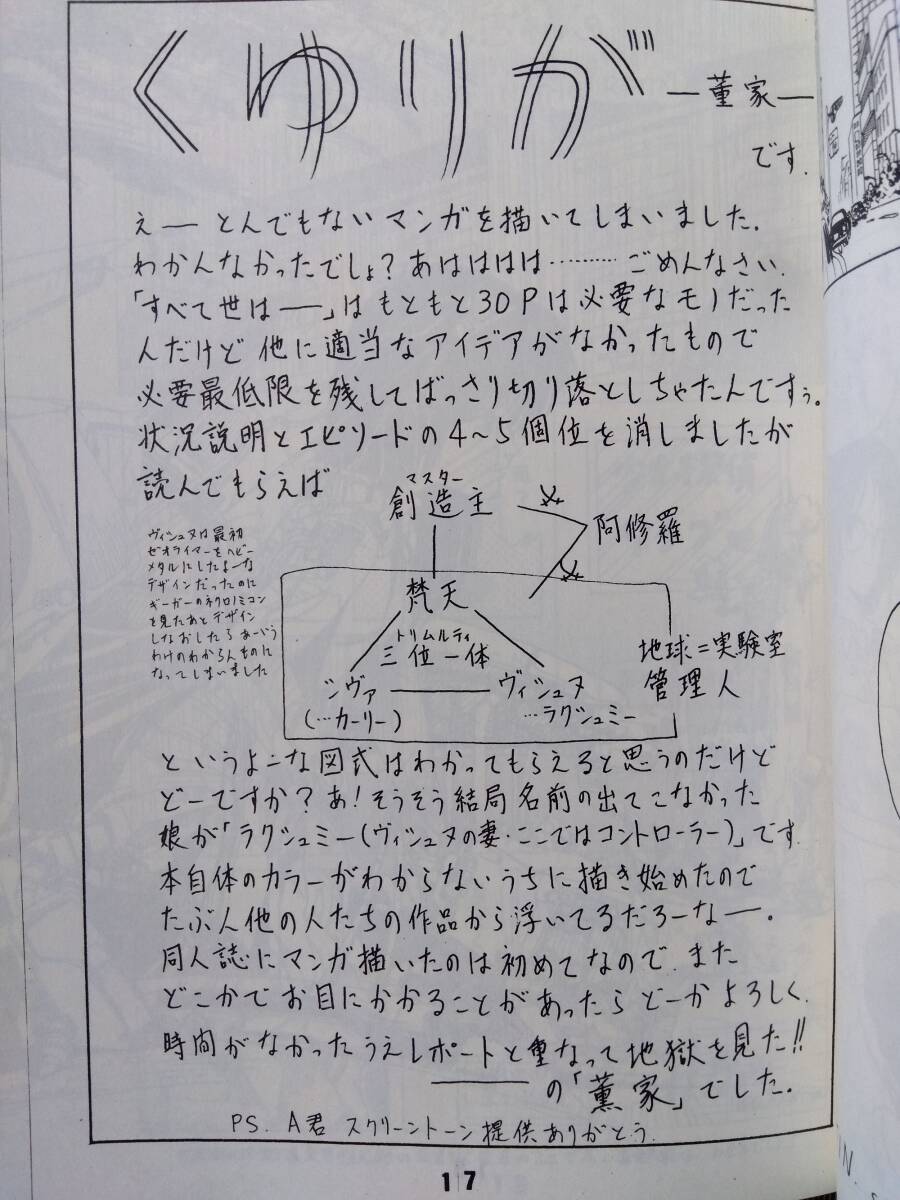 くゆりが
―薫家―
です.
えー とんでもないマンガを描いてしまいました.
わかんなかったでしょ?あはははは………ごめんなさい.
「すべて世は――」はもともと30Pは必要なモノだった
んだけど他に適当なアイデアがなかったもので
必要最低限を残してばっさり切り落としちゃたんですぅ。
状況説明とエピソードの4~5個位を消しましたが
読んでもらえば
マスター
創造主
阿修羅
梵天
トリムルティ
三位一体
シヴァ
(…カーリー)
ヴィシュヌ
…ラクシュミー
地球=実験室
管理人
ヴィシュヌは最初
ゼオライマーをヘビー
メタルにしたよーな
デザインだったのに
ギーガーのネクロノミコン
を見たあとデザイン
しなおしたら あーいう
わけのわからんものに
なってしまいました
というよーな図式はわかってもらえると思うのだけど
どーですか?あ!そうそう結局名前の出てこなかった
娘が「ラクシュミー(ヴィシュヌの妻・ここではコントローラー)」です.
本自体のカラーがわからないうちに描き始めたので
たぶん他の人たちの作品から浮いてるだろーなー。
同人誌にマンガ描いたのは初めてなので.また
どこかでお目にかかることがあったらどーかよろしく.
時間がなかったうえレポートと重なって地獄を見た!!
――の「薫家」でした.
PS. A君 スクリーントーン提供ありがとう.
17